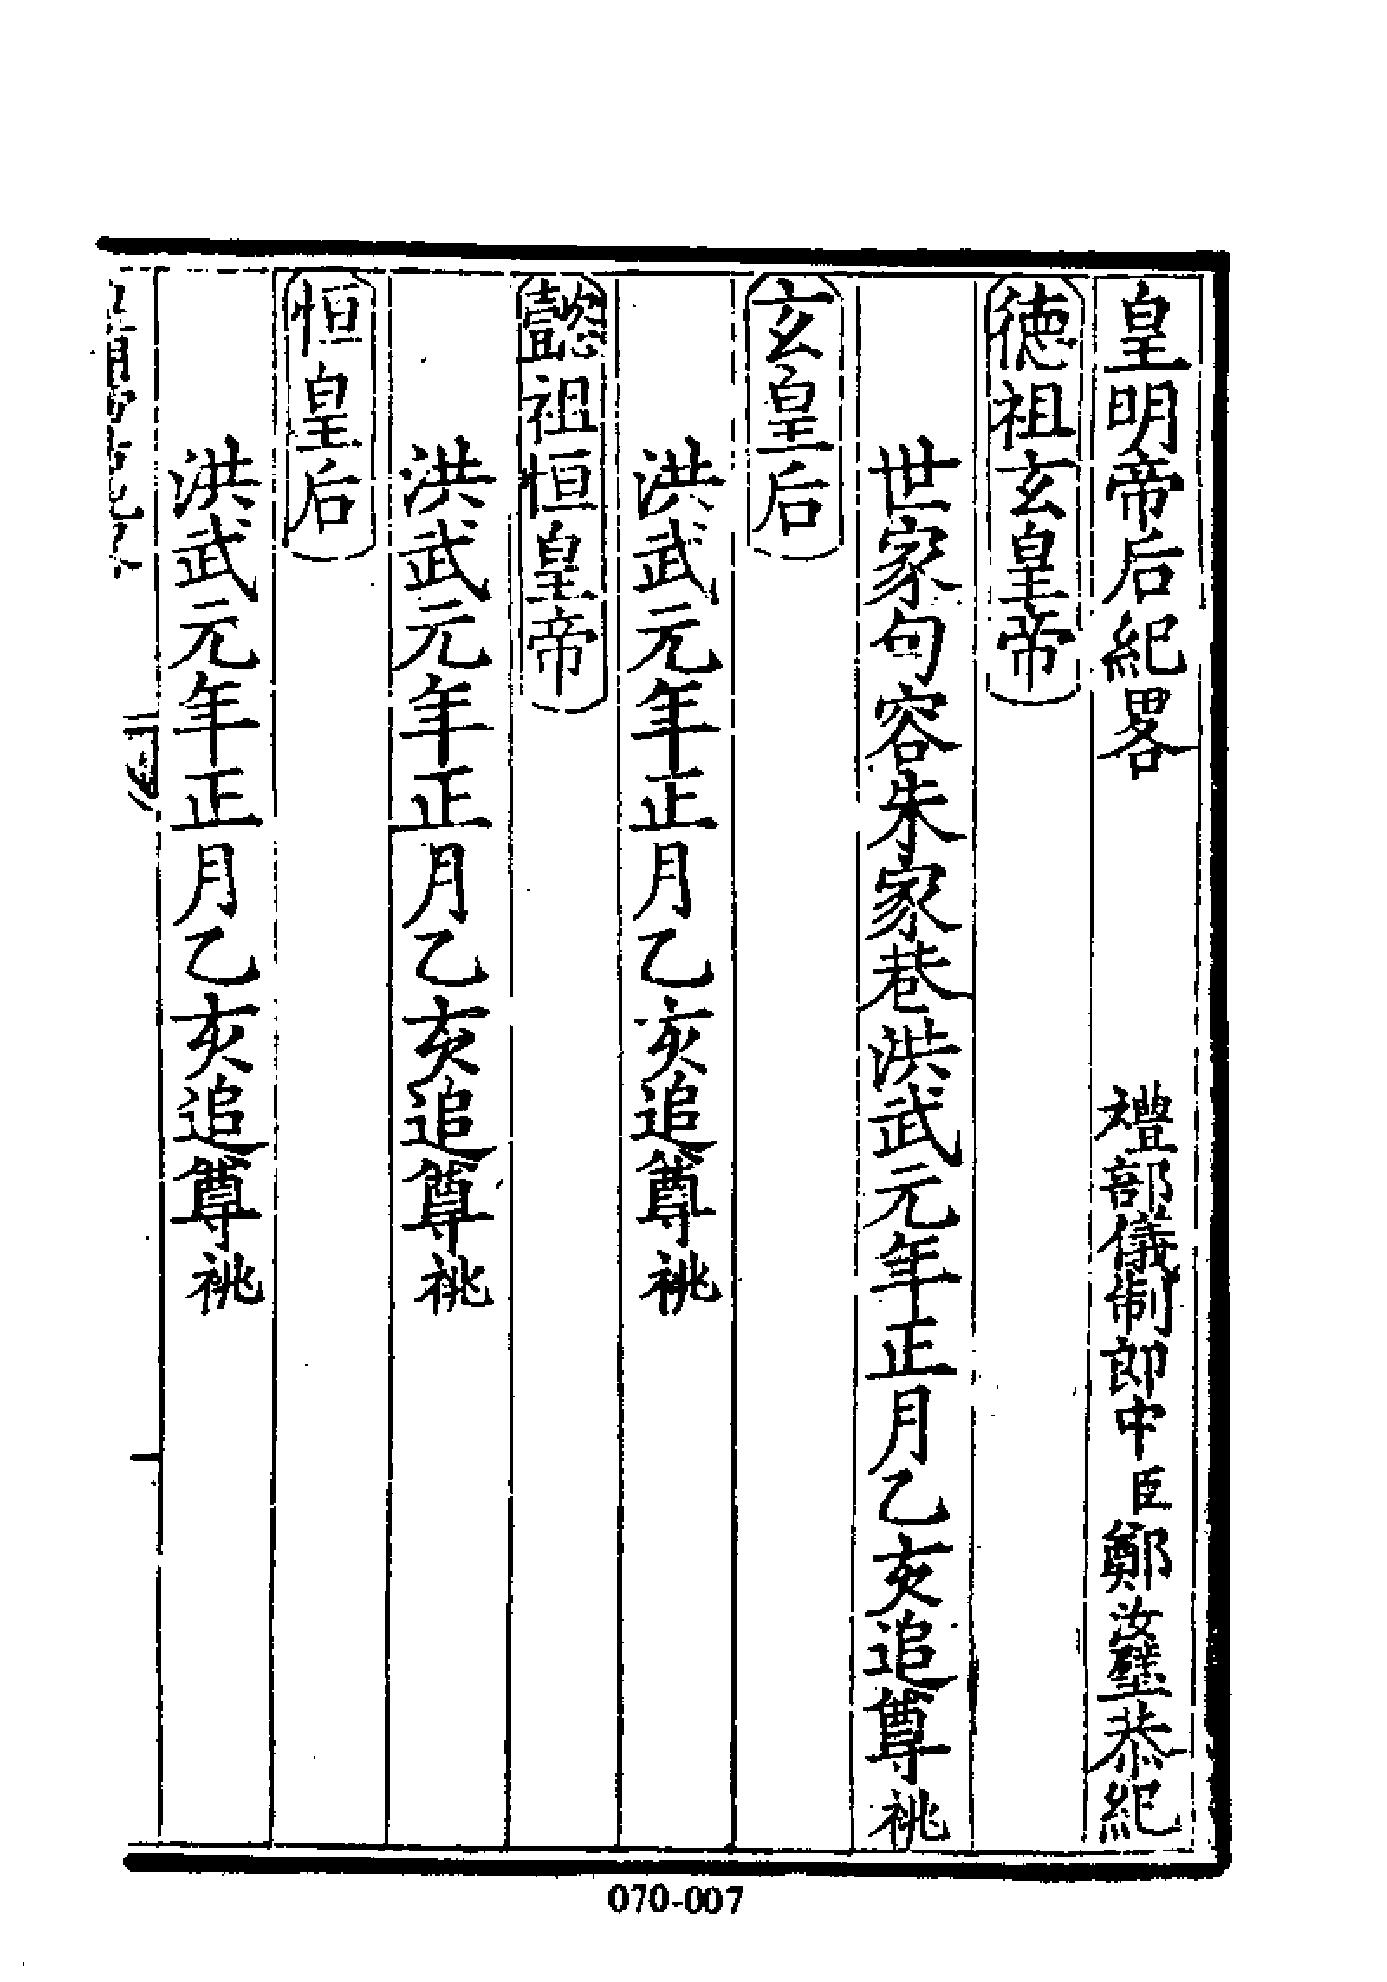 皇明帝后紀畧　禮部儀制郎中臣鄭汝璧恭紀
德祖玄皇帝
世家句容朱家巷洪武元年正月乙亥追尊祧
玄皇后
洪武元年正月乙亥追尊祧
懿祖恒皇帝
洪武元年正月乙亥追尊祧
恒皇后
洪武元年正月乙亥追尊祧
070-007